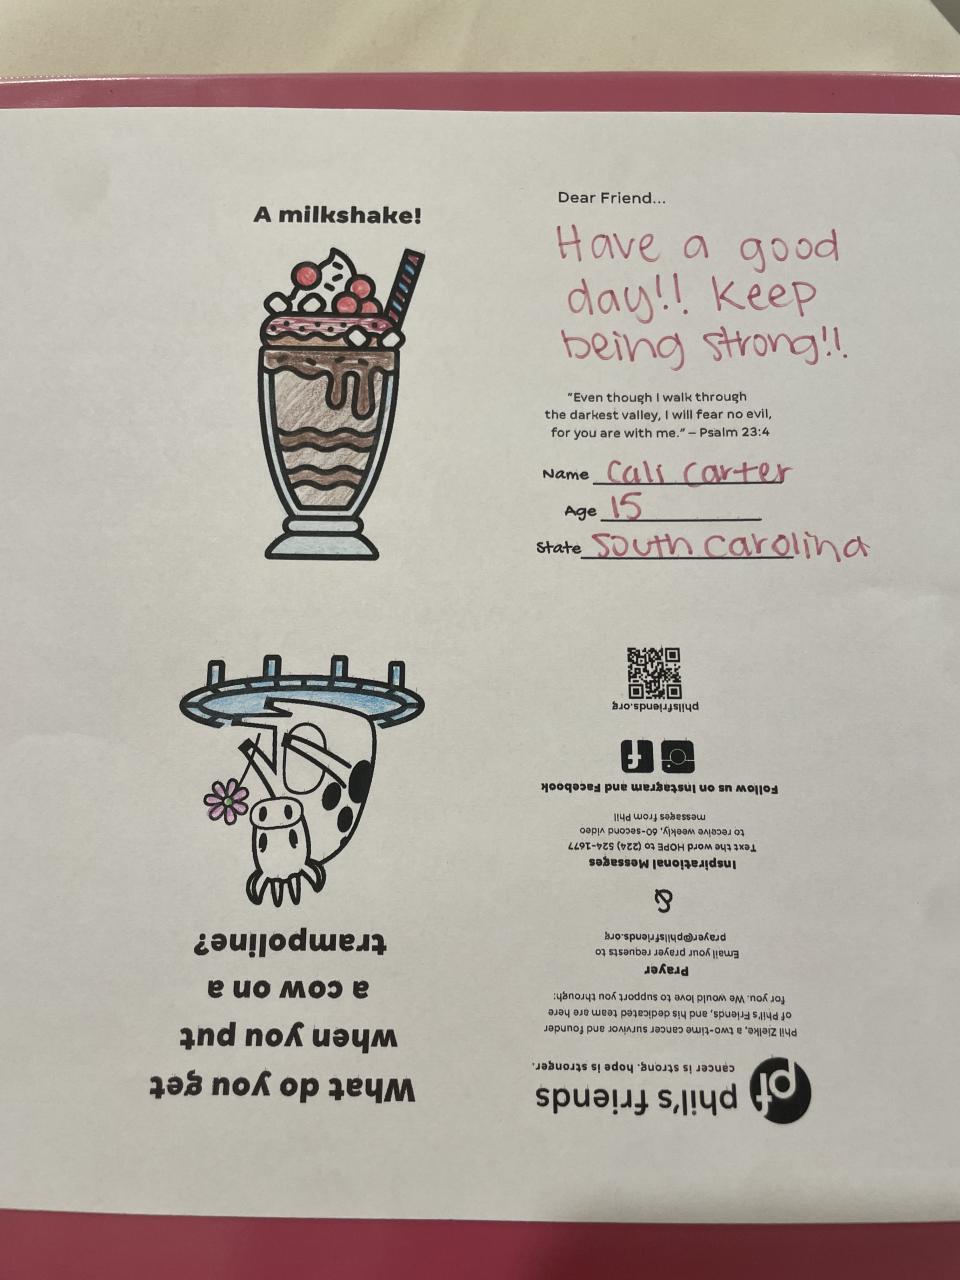 A milkshake!
Dear Friend...
Have a good
day!! Keep
being strong!!
"Even though I walk through
the darkest valley, I will fear no evil,
for you are with me." – Psalm 23:4
Name Cali Carter
Age 15
State South Carolina
What do you get
when you put
a cow on a
trampoline?
pf
phil's friends
cancer is strong. hope is stronger.
Phil Zielke, a two-time cancer survivor and founder
of Phil's Friends, and his dedicated team are here
for you. We would love to support you through:
Prayer
Email your prayer requests to
prayer@philsfriends.org
&
Inspirational Messages
Text the word HOPE to (224) 524-1677
to receive weekly, 60-second video
messages from Phil
Follow us on Instagram and Facebook
philsfriends.org